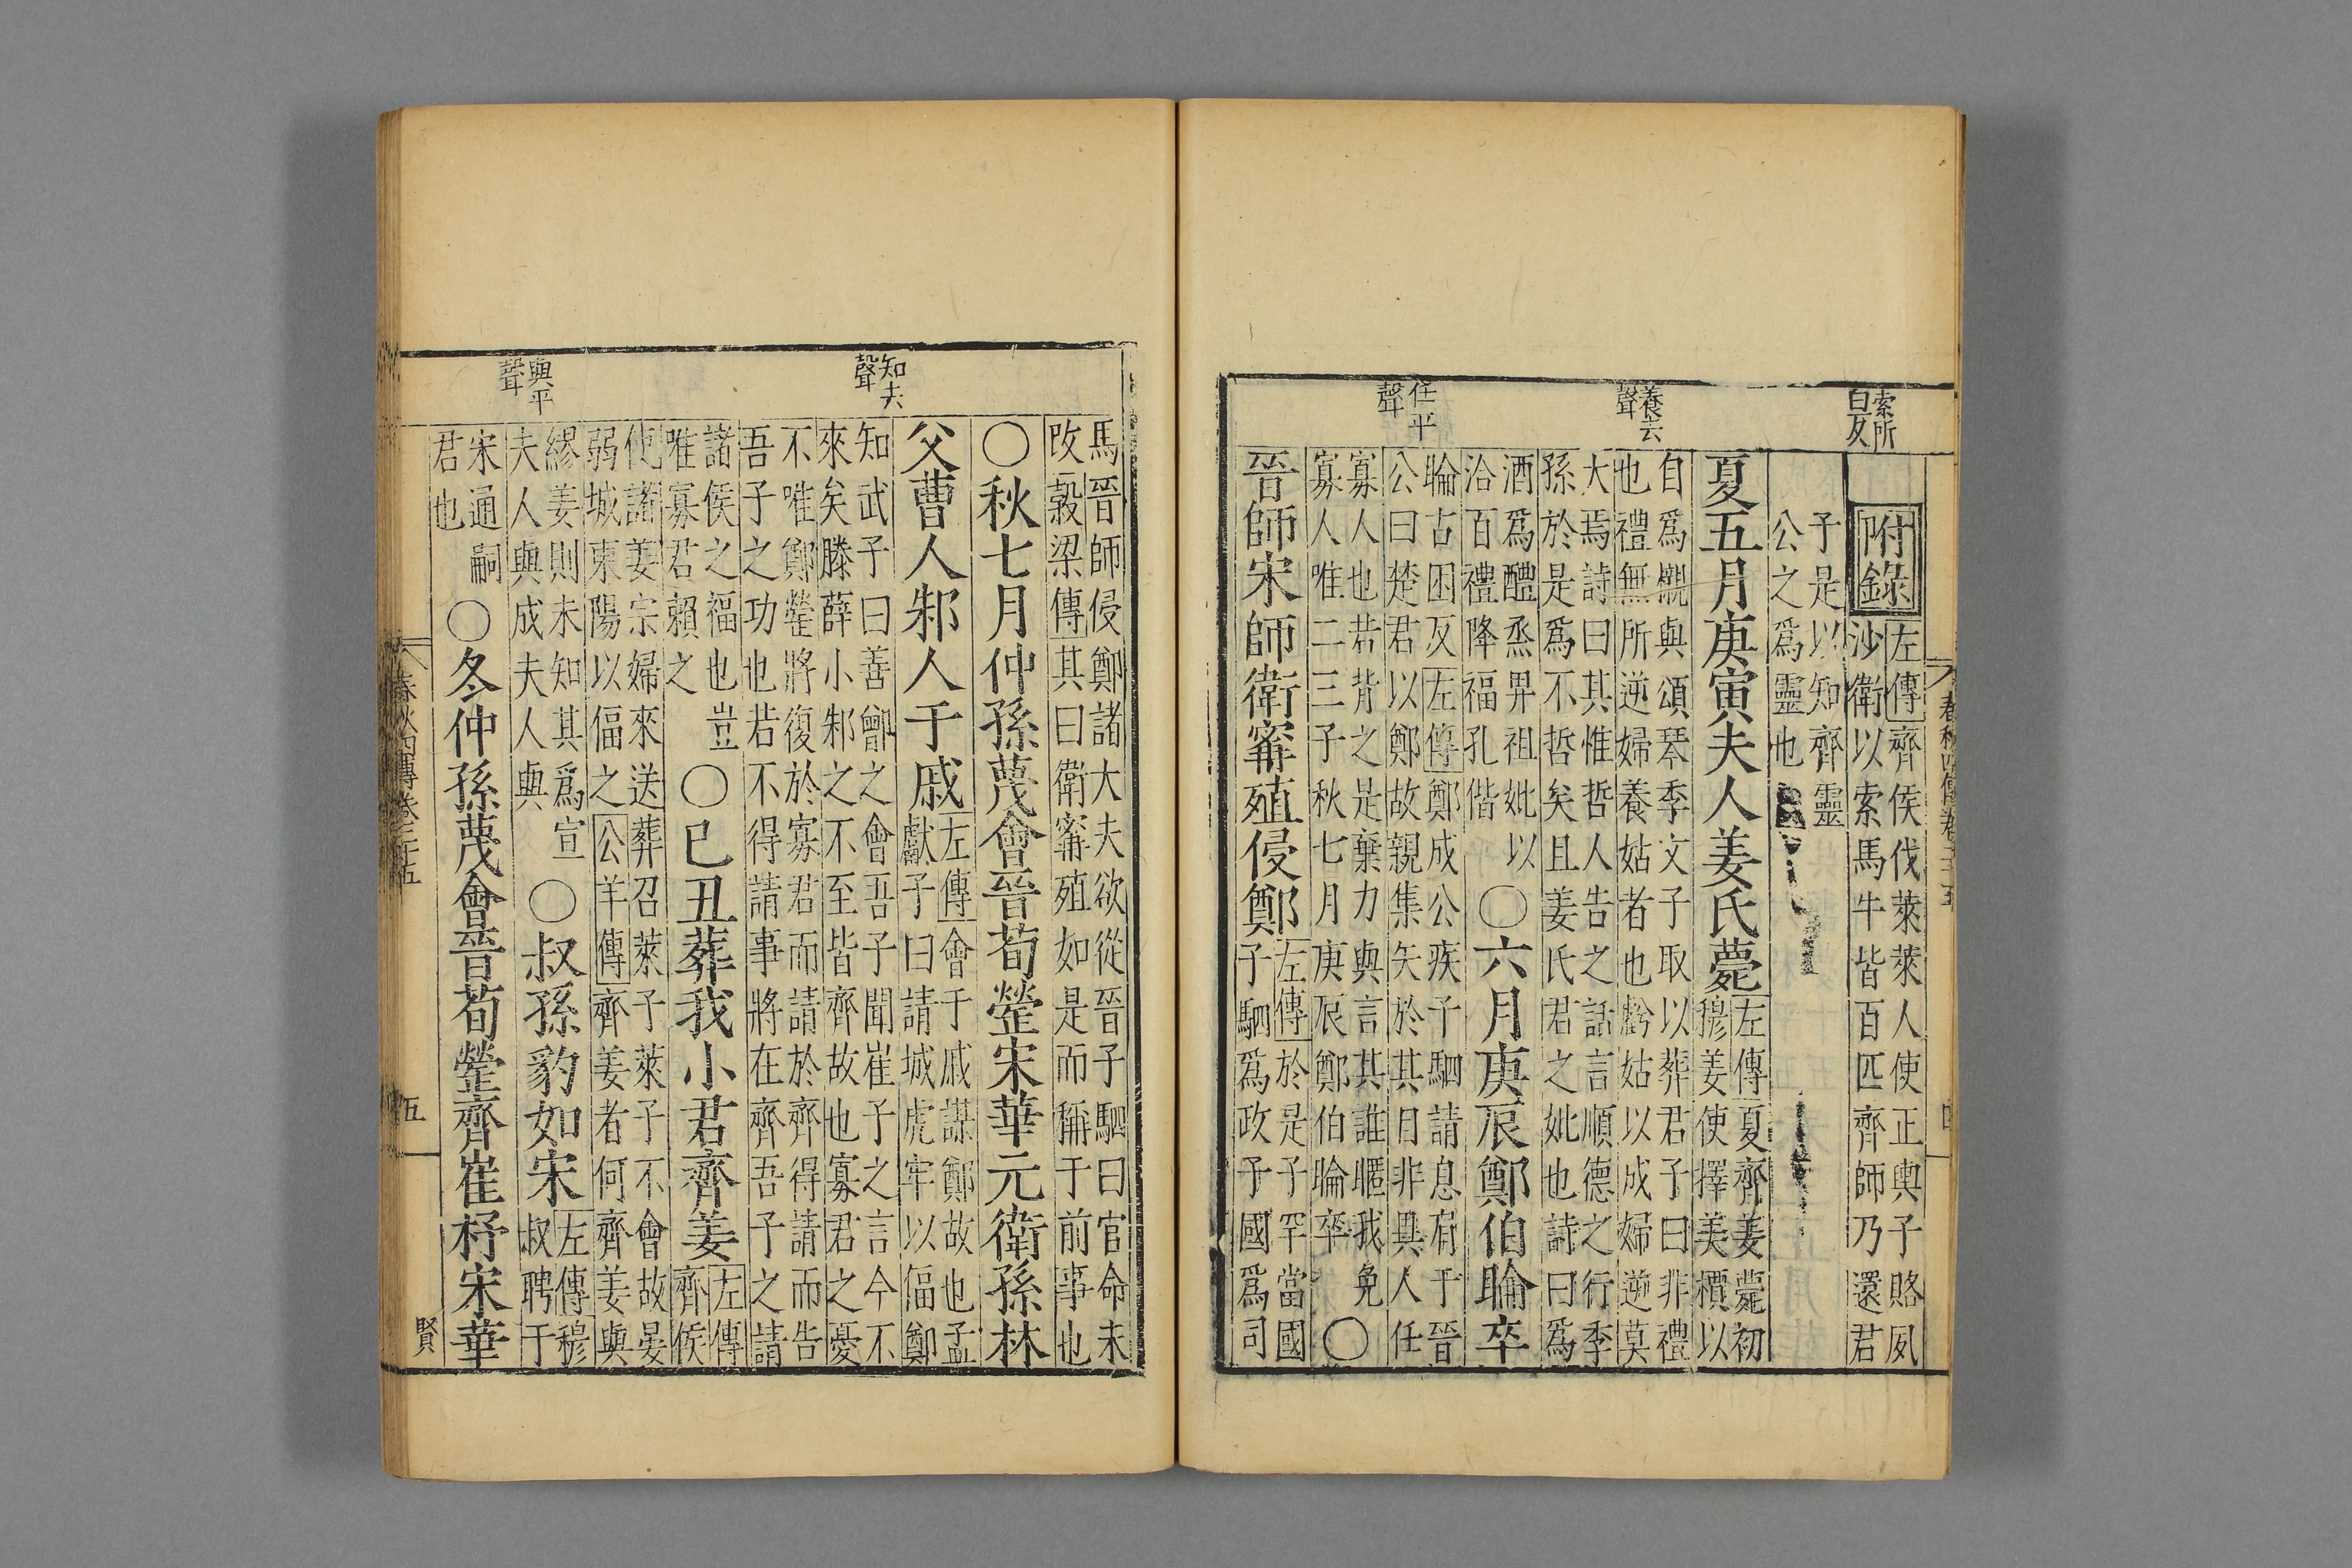 索所
白反
養去
聲
任平
聲
附錄
左傳齊侯伐萊萊人使正輿子賂夙
沙衛以索馬牛皆百匹齊師乃還君
子是以知齊靈
公之爲靈也
夏五月庚寅夫人姜氏薨
左傳夏齊姜薨初
穆姜使擇美檟以
自爲櫬與頌琴季文子取以葬君子曰非禮
也禮無所逆婦養姑者也虧姑以成婦逆莫
大焉詩曰其惟哲人告之話言順德之行季
孫於是爲不哲矣且姜氏君之妣也詩曰爲
酒爲醴烝畀祖妣以
洽百禮降福孔偕
○六月庚辰鄭伯睔卒
睔古困反左傳鄭成公疾子駟請息肩于晉
公曰楚君以鄭故親集矢於其目非異人任
寡人也若背之是棄力與言其誰暱我免
寡人唯二三子秋七月庚辰鄭伯睔卒
○
晉師宋師衛甯殖侵鄭
左傳於是子罕當國
子駟爲政子國爲司
春秋四傳卷二十五
四
知去
聲
與平
聲
馬晉師侵鄭諸大夫欲從晉子駟曰官命未
改穀梁傳其曰衛甯殖如是而稱于前事也
○秋七月仲孫蔑會晉荀罃宋華元衛孫林
父曹人邾人于戚
左傳會于戚謀鄭故也孟
獻子曰請城虎牢以偪鄭
知武子曰善鄫之會吾子聞崔子之言今不
來矣滕薛小邾之不至皆齊故也寡君之憂
不唯鄭罃將復於寡君而請於齊得請而告
吾子之功也若不得請事將在齊吾子之請
諸侯之福也豈
唯寡君賴之
○己丑葬我小君齊姜
左傳
齊侯
使諸姜宗婦來送葬召萊子萊子不會故晏
弱城東陽以偪之公羊傳齊姜者何齊姜與
繆姜則未知其爲宣
夫人與成夫人與
○叔孫豹如宋
左傳穆
叔聘于
宋通嗣
君也
○冬仲孫蔑會晉荀罃齊崔杼宋華
春秋四傳卷二十五
五
賢